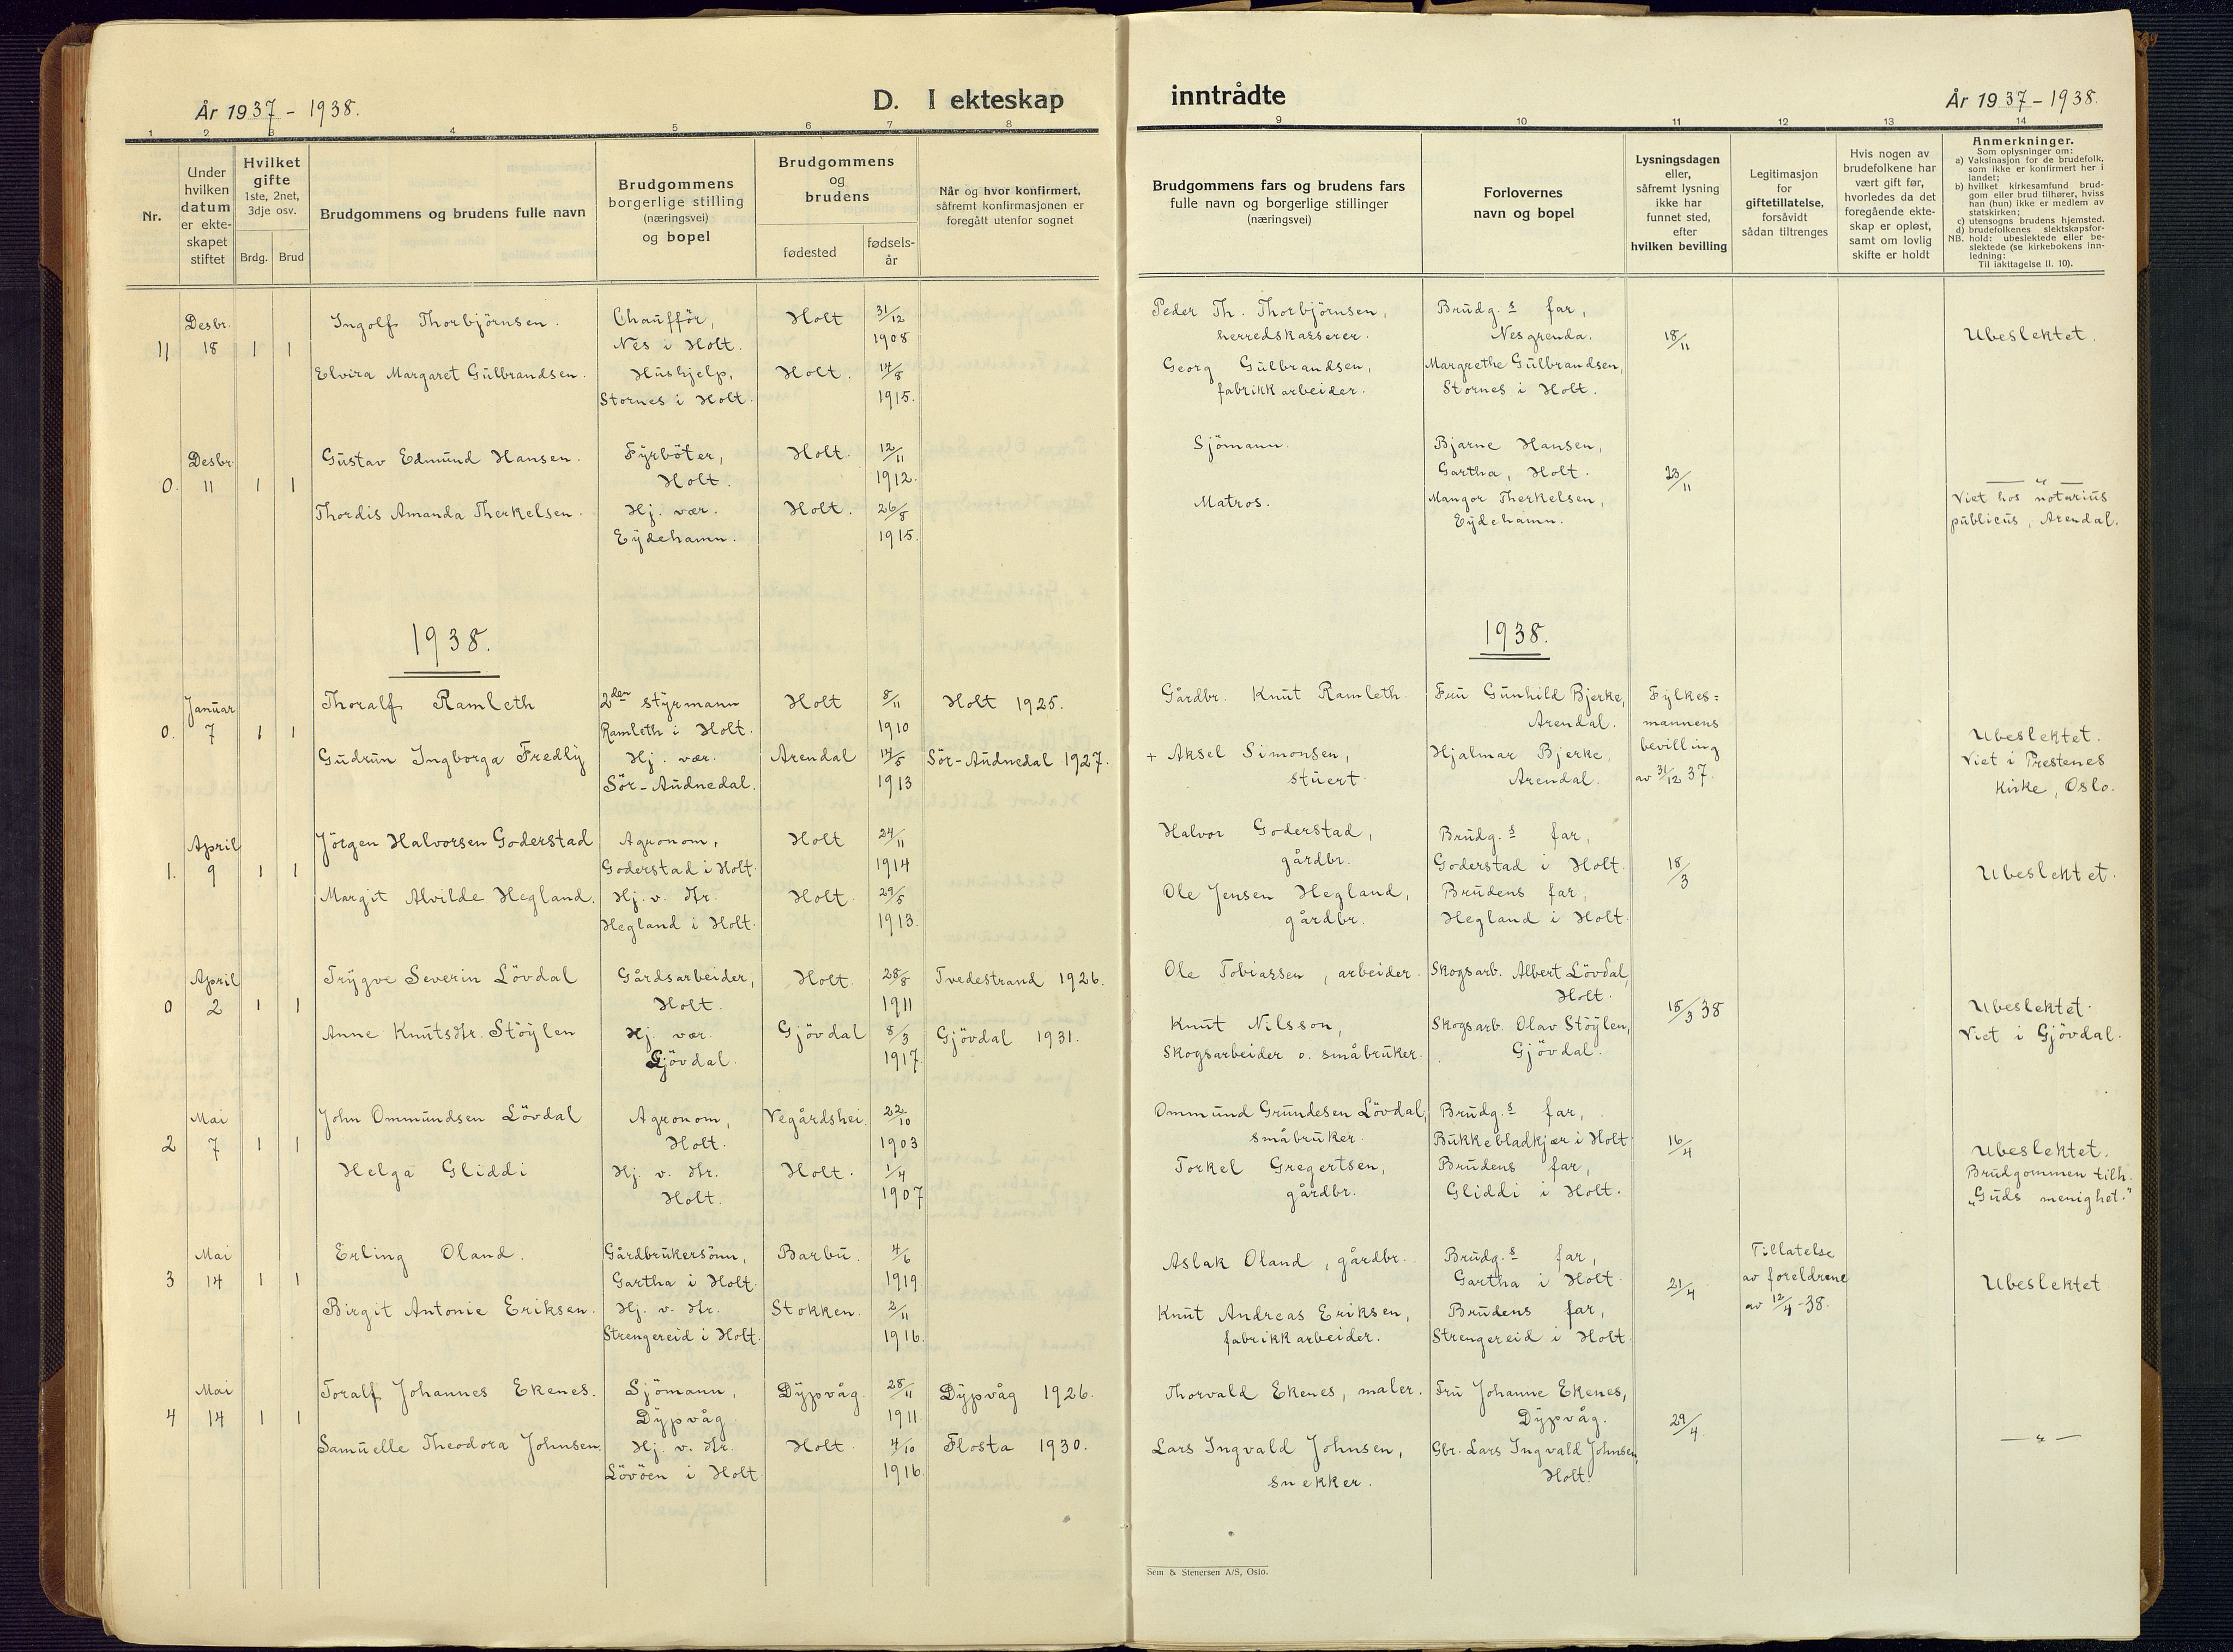 År 1937 - 1938.
D. I ekteskap
1 2 3 4 5 6 7 8
Nr.
Under hvilken datum er ekteskapet stiftet
Hvilket gifte 1ste, 2net, 3dje osv.
Brdg. Brud
Brudgommens og brudens fulle navn
Brudgommens borgerlige stilling (næringsvei) og bopel
Brudgommens og brudens
fødested
fødsels-år
Når og hvor konfirmert, såfremt konfirmasjonen er foregått utenfor sognet
Desbr. Ingolf Thorbjörnsen. Chaufför, Holt 31/12
11 18 1 1 Nes i Holt. 1908
Elvira Margaret Gulbrandsen. Hushjelp, Holt. 14/8
Stornes i Holt. 1915.
Desbr. Gustav Edmund Hansen. Fyrböter, Holt. 12/11
0. 11 1 1 Holt. 1912.
Thordis Amanda Therkelsen. Hj. vær. Holt. 26/8
Eydehamn. 1915.
1938.
Januar Thoralf Ramleth 2den styrmann Holt 8/11 Holt 1925.
0. 7 1 1 Ramleth i Holt. 1910
Gudrun Ingborga Fredly Hj. vær. Arendal 14/5 Sör-Audnedal 1927.
Sör-Audnedal. 1913
April Jörgen Halvorsen Goderstad Agronom, Holt 24/11
1. 9 1 1 Goderstad i Holt. 1914
Margit Alvilde Hegland. Hj. v. dtr. Holt. 29/5
Hegland i Holt. 1913.
April Trygve Severin Lövdal Gårdsarbeider, Holt. 28/8 Tvedestrand 1926.
0 2 1 1 Holt. 1911
Anne Knutsdtr. Stöylen Hj. vær. Gjövdal 8/3 Gjövdal 1931.
Gjövdal. 1917.
Mai John Ommundsen Lövdal Agronom, Vegårdshei. 22/10
2 7 1 1 Holt. 1903
Helga Gliddi Hj. v. dtr. Holt. 1/4
Holt. 1907
Mai Erling Oland. Gårdbrukersönn, Barbu. 4/6
3 14 1 1 Gartha i Holt. 1919.
Birgit Antonie Eriksen. Hj. v. dtr. Stokken. 2/11
Strengereid i Holt. 1916.
Mai Toralf Johannes Ekenes. Sjömann, Dypvåg. 28/11 Dypvåg 1926.
4 14 1 1 Dypvåg 1911.
Samuelle Theodora Johnsen. Hj. v. dtr. Holt. 4/10 Flosta 1930.
Lövöen i Holt. 1916.
inntrådte
År 1937 - 1938.
9 10 11 12 13 14
Brudgommens fars og brudens fars fulle navn og borgerlige stillinger (næringsvei)
Forlovernes navn og bopel
Lysningsdagen eller, såfremt lysning ikke har funnet sted, efter hvilken bevilling
Legitimasjon for giftetillatelse, forsåvidt sådan tiltrenges
Hvis nogen av brudefolkene har vært gift før, hvorledes da det foregående ekteskap er opløst, samt om lovlig skifte er holdt
Anmerkninger.
Som oplysninger om:
a) Vaksinasjon for de brudefolk. som ikke er konfirmert her i landet;
b) hvilket kirkesamfund brudgom eller brud tilhører, hviss han (hun) ikke er medlem av statskirken;
c) utensogns brudens hjemsted.
d) brudefolkenes slektskapsforhold: ubeslektede eller beslektede (se kirkebokens innledning:
NB. Til iakttagelse II. 10).
Peder Th. Thorbjörnsen, Brudg.s far,
herredskasserer. Nesgrenda. 18/11 Ubeslektet.
Georg Gulbrandsen, Margrethe Gulbrandsen,
fabrikkarbeider. Stornes i Holt.
Sjömann. Bjarne Hansen,
Gartha, Holt. 23/11 — " —
Matros. Mangor Therkelsen, Viet hos notarius
Eydehamn. publicus, Arendal.
1938.
Gårdbr. Knut Ramleth. Fru Gunhild Bjerke, Fylkes=
Arendal. mannens Ubeslektet.
+ Aksel Simonsen, Hjalmar Bjerke, bevilling Viet i Prestenes
stuert. Arendal. av 31/12 37. kirke, Oslo.
Halvor Goderstad, Brudg.s far,
gårdbr. Goderstad i Holt. 18/3 Ubeslektet.
Ole Jensen Hegland, Brudens far,
gårdbr. Hegland i Holt.
Ole Tobiassen, arbeider. Skogsarb. Albert Lövdal,
Holt. 18/3 38 Ubeslektet.
Knut Nilsson, Skogsarb. Olav Stöylen, Viet i Gjövdal.
Skogsarbeider o. småbruker. Gjövdal.
Ommund Grundesen Lövdal, Brudg.s far,
småbruker. Bukkebladkjær i Holt. 16/4 Ubeslektet.
Torkel Gregertsen, Brudens far, Brudgommen tilh.
gårdbr. Gliddi i Holt. „Guds menighet."
Aslak Oland, gårdbr. Brudg.s far, Tillatelse
Gartha i Holt. 21/4 av foreldrene Ubeslektet
Knut Andreas Eriksen, Brudens far, av 12/4-38.
fabrikkarbeider. Strengereid i Holt.
Thorvald Ekenes, maler. Fru Johanne Ekenes,
Dypvåg. 29/4 — " —
Lars Ingvald Johnsen, Gbr. Lars Ingvald Johnsen,
snekker. Holt.
Sem & Stenersen A/S, Oslo.